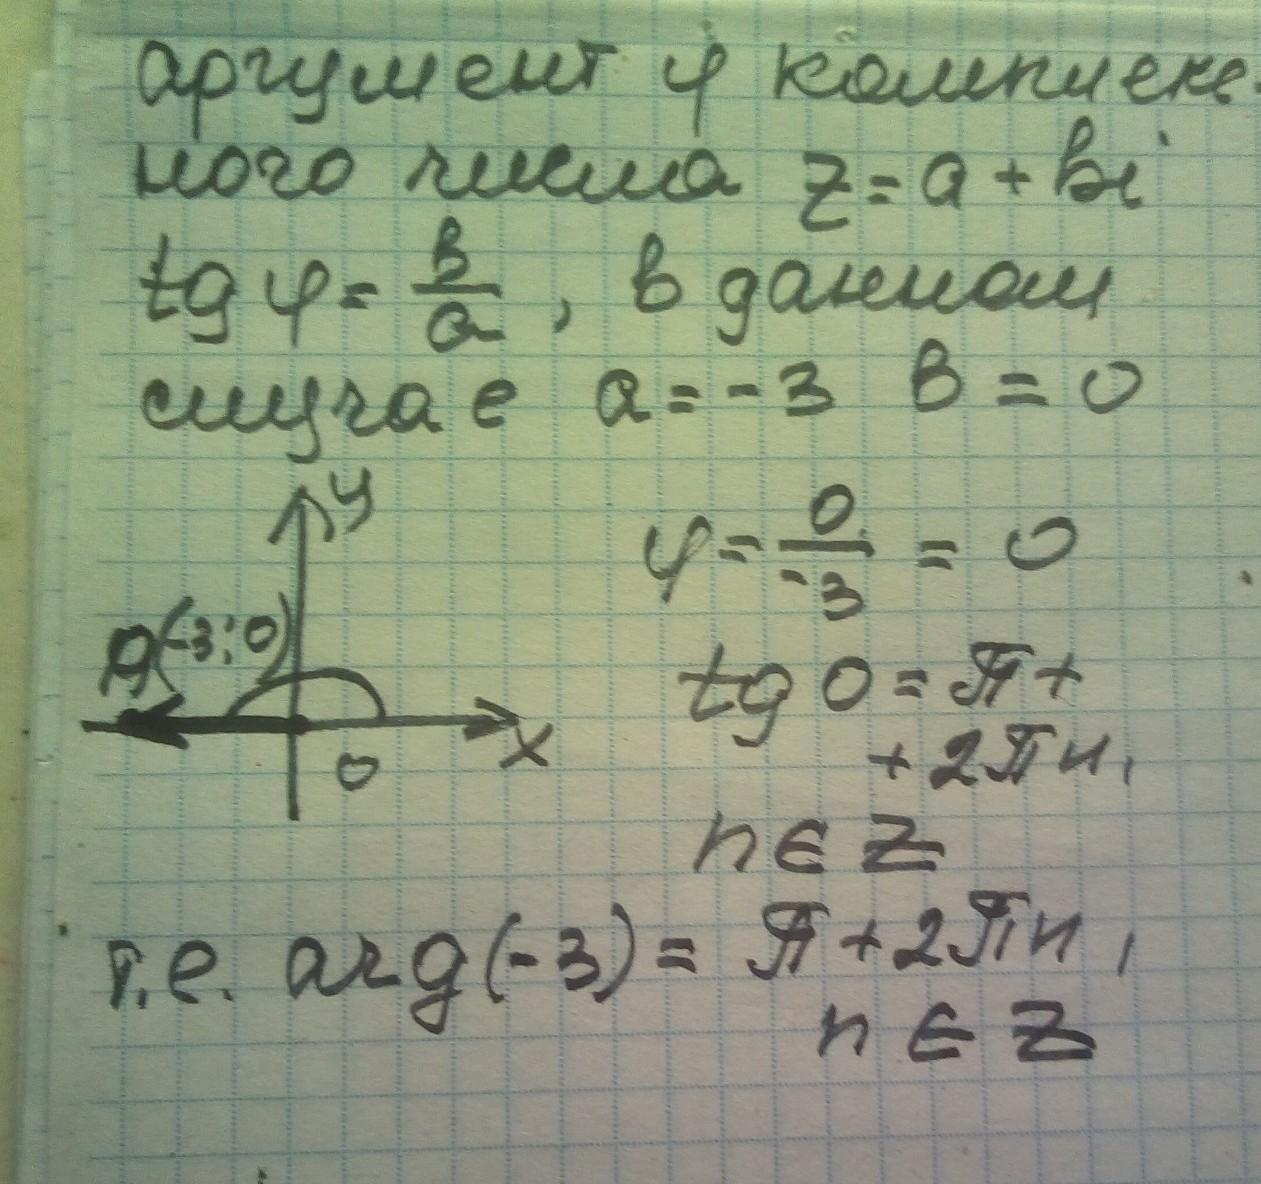 аргумент φ комплекс-
ного числа z = a + bi
tg φ = b/a , в данном
случае a = -3 b = 0
y
A(-3; 0)
x
0
φ = 0/-3 = 0
tg 0 = π +
+ 2πn,
n ∈ Z
т.е. arg(-3) = π + 2πn,
n ∈ Z